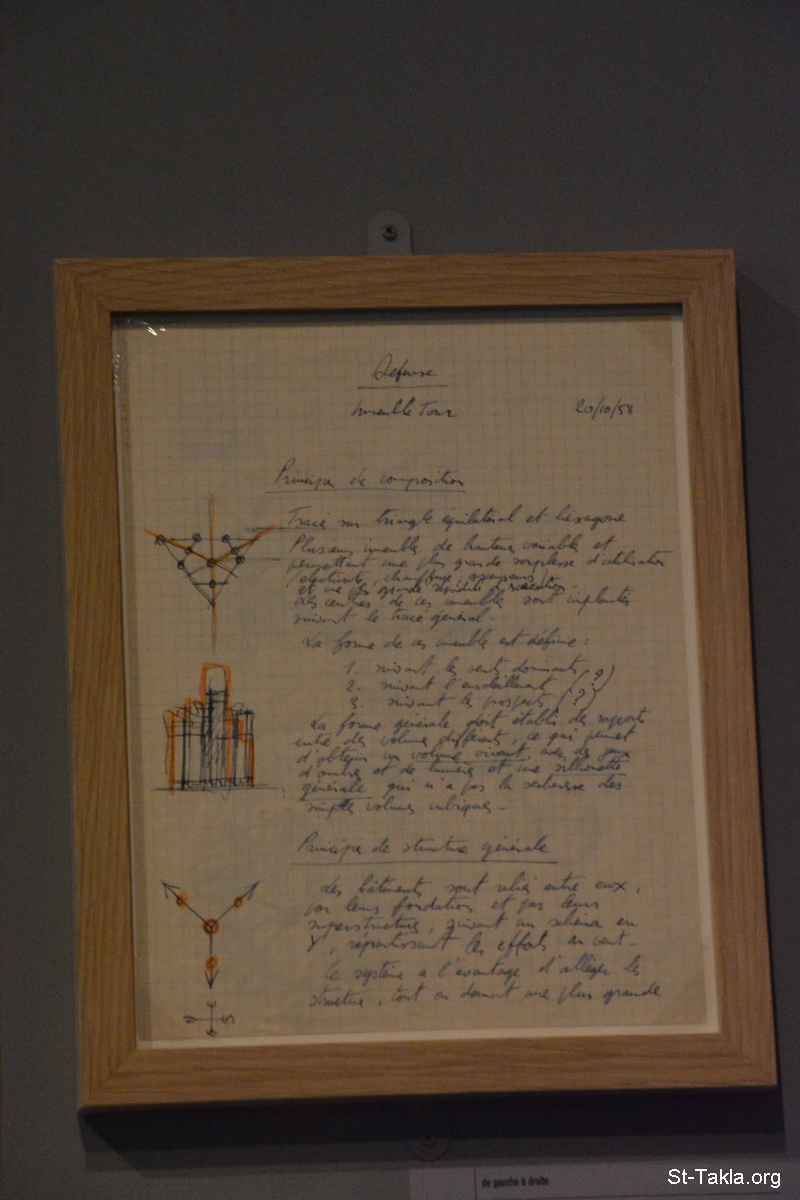 Défense
Immeuble Tour 20/10/58
Principe de composition
Tracé sur triangle équilatéral et hexagone
Plusieurs immeubles de hauteurs variables et
permettant une plus grande souplesse d'utilisation
électricité, chauffage,
et une plus grande
Les centres de ces immeubles sont implantés
suivant le tracé général -
La forme de ces immeuble est définie :
1. suivant les vents dominants (?)
2. suivant l'ensoleillement (?)
3. suivant les prospects (?)
La forme générale doit établir des rapports
entre des volumes différents, ce qui permet
d'obtenir un volume vivant, avec des jeux
d'ombre et de lumière et une silhouette
générale qui n'a pas la sécheresse des
simples volumes cubiques -
Principe de structure générale
Les bâtiments sont reliés entre eux,
par leurs fondations et par leurs
superstructures, suivant un schéma en
Y, répartissant les efforts au vent -
Ce système a l'avantage d'alléger les
structures, tout en donnant une plus grande
de gauche à droite
St-Takla.org